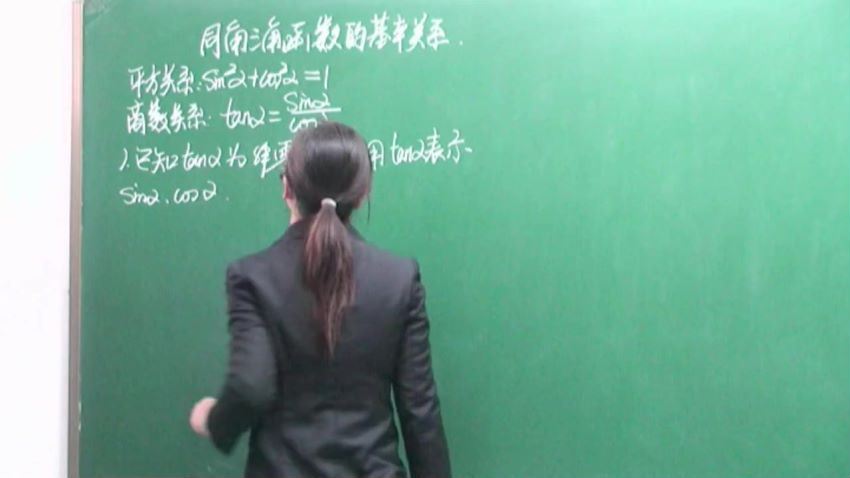 同角三角函数的基本关系.
平方关系:sin²α+cos²α=1
商数关系:tanα=sinα/cos
1.已知tanα为非 用tanα表示
sinα.cosα.